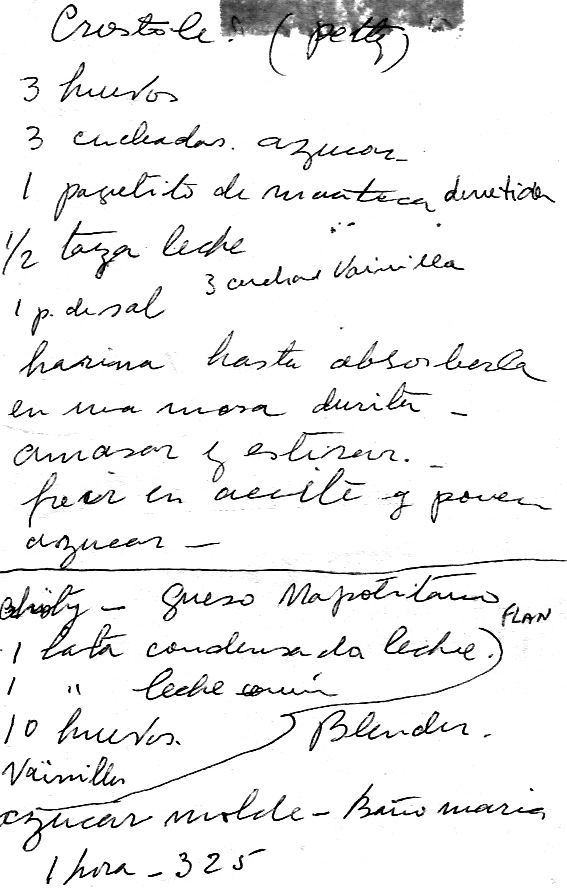 Crostole. (petty)
3 huevos
3 cucharadas. azucar
1 paquetito de manteca derretida
1/2 taza leche
3 cuchard Vainilla
1 p. de sal
harina hasta absorberla
en una masa durita -
amasar y estirar. -
freir en aceite y poner
azucar -
- queso Napolitano
FLAN
1 lata condensada leche.
1 " leche comun
10 huevos. Blender.
Vainilla
azucar molde - Baño maria
1 hora - 325